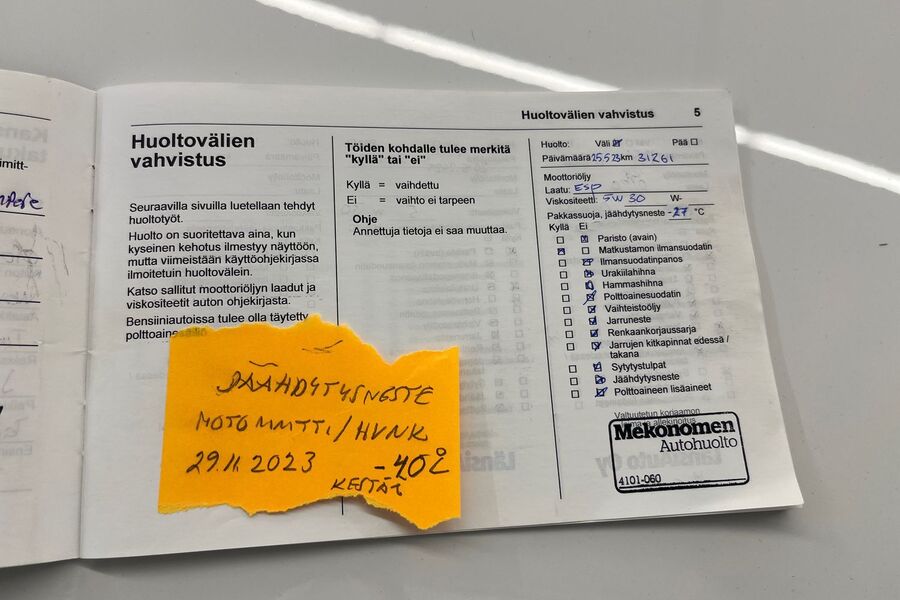 Huoltovälien vahvistus 5
Huoltovälien
vahvistus
Seuraavilla sivuilla luetellaan tehdyt
huoltotyöt.
Huolto on suoritettava aina, kun
kyseinen kehotus ilmestyy näyttöön,
mutta viimeistään käyttöohjekirjassa
ilmoitetuin huoltovälein.
Katso sallitut moottoriöljyn laadut ja
viskositeetit auton ohjekirjasta.
Bensiiniautoissa tulee olla täytetty
JÄÄHDYTYSNESTE
29.11.2023 -40
Töiden kohdalle tulee merkitä
"kyllä" tai "ei"
Kyllä = vaihdettu
Ei = vaihto ei tarpeen
Ohje
Annettuja tietoja ei saa muuttaa.
Huolto: Väli Pää
Päivämäärä 25.5.23 km 31261
Moottoriöljy
Laatu: ESP
Viskositeetti: 5W 30 W-
Pakkassuoja, jäähdytysneste -27 °C
Kyllä Ei
Paristo (avain)
Matkustamon ilmansuodatin
Ilmansuodatinpanos
Urakiilahihna
Hammashihna
Polttoainesuodatin
Vaihteistoöljy
Jarruneste
Renkaankorjaussarja
Jarrujen kitkapinnat edessä /
takana
Sytytystulpat
Jäähdytysneste
Polttoaineen lisäaineet
Valtuutetun korjaamon
Mekonomen
Autohuolto
4101-060